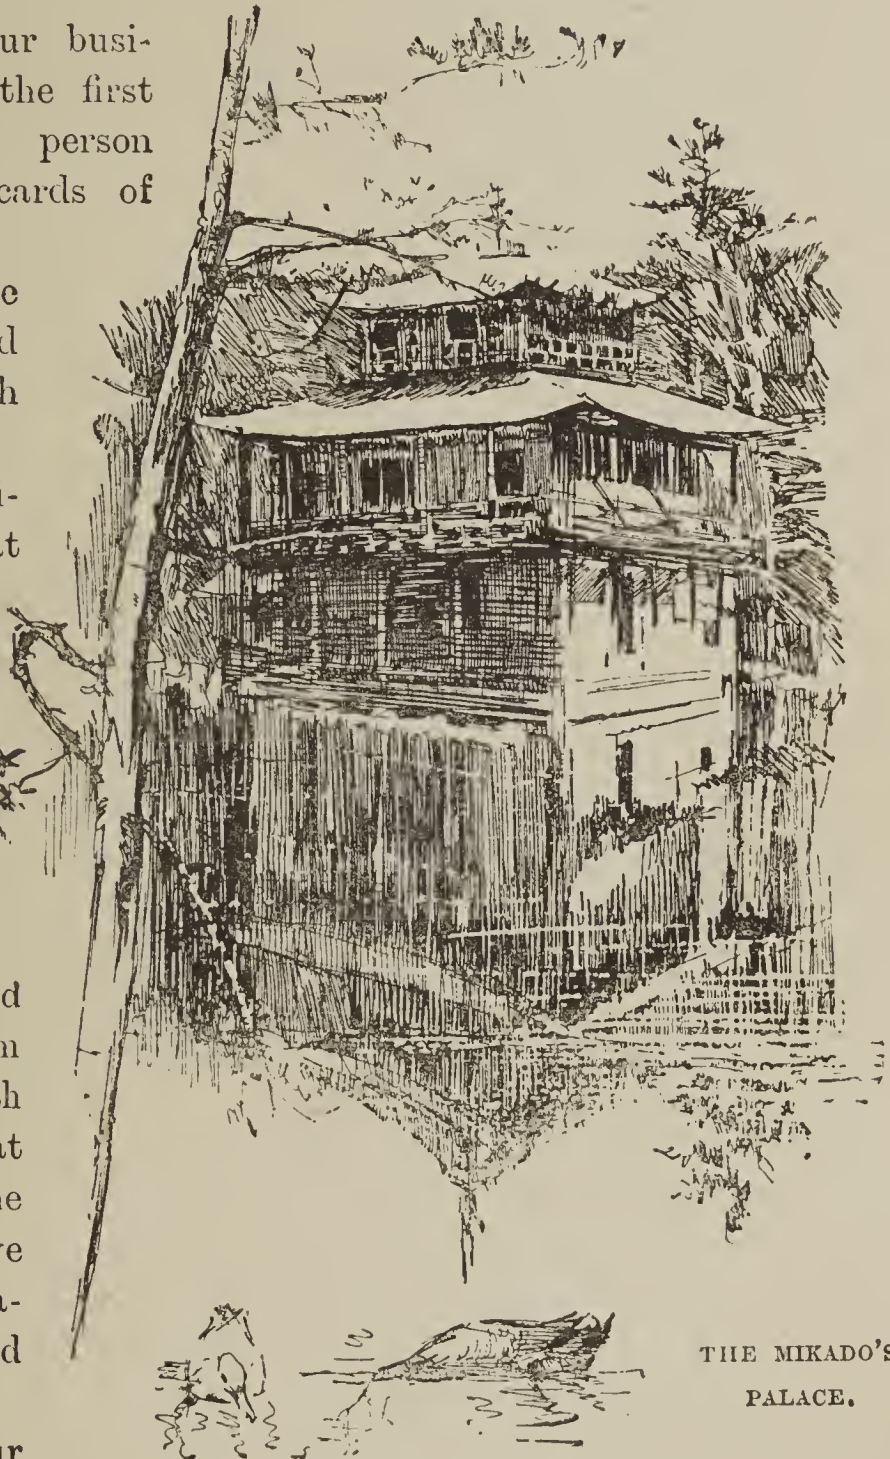 ur busi-
the first
person
cards of
e
d
h
-
t
d
n
h
at
ne
ve
-
d
ur
THE MIKADO'S
PALACE.